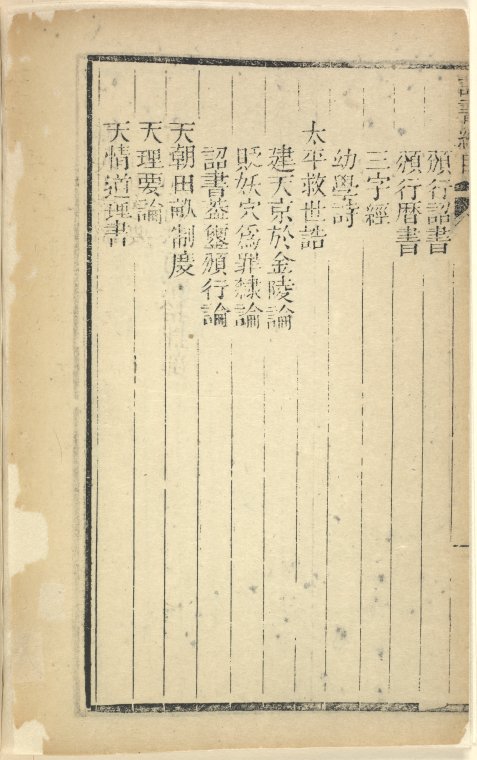 頒行詔書
頒行曆書
三字經
幼學詩
太平救世誥
建天京於金陵論
貶妖穴爲罪隸論
詔書葢璽頒行論
天朝田畝制度
天理要論
天情道理書